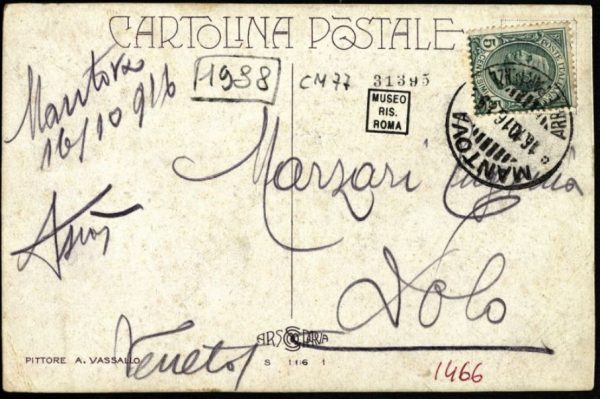 CARTOLINA POSTALE
Mantova
16/10 916
1938
CM77
31395
MUSEO
RIS.
ROMA
5
MANTOVA
16.10.16
ARR
Marzari
Dolo
Veneto
ARS PARVA
S 116 1
PITTORE A. VASSALLO
1466